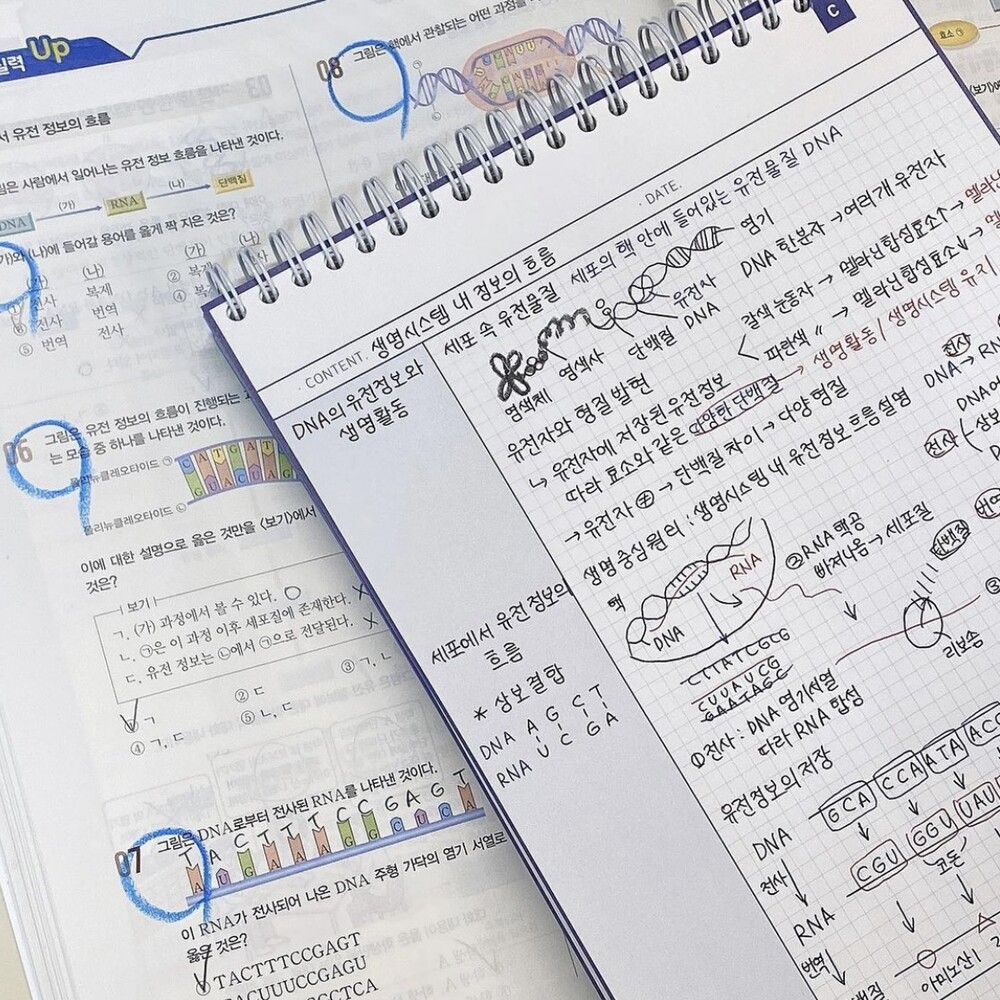 실력 Up
서 유전 정보의 흐름
림은 사람에서 일어나는 유전 정보 흐름을 나타낸 것이다.
DNA (가) RNA (나) 단백질
가)와 (나)에 들어갈 용어를 옳게 짝 지은 것은?
(나) (가) (나)
전사 복제 ② 복제
전사 번역 ④ 복제
⑤ 번역 전사
06 그림은 유전 정보의 흐름이 진행되는
는 모습 중 하나를 나타낸 것이다.
폴리뉴클레오타이드 ㉠
CATGAT
GUACUAG
폴리뉴클레오타이드 ㉡
이에 대한 설명으로 옳은 것만을 <보기>에서
것은?
보기
ㄱ. (가) 과정에서 볼 수 있다. ○
ㄴ. ㉠은 이 과정 이후 세포질에 존재한다. X
ㄷ. 유전 정보는 ㉡에서 ㉠으로 전달된다. X
ㄱ ② ㄷ ③ ㄱ, ㄴ
④ ㄱ, ㄷ ⑤ ㄴ, ㄷ
07 그림은 DNA로부터 전사된 RNA를 나타낸 것이다.
T A C T T T C C G A G T
A U G A A A G G C U C A
이 RNA가 전사되어 나온 DNA 주형 가닥의 염기 서열로
옳은 것은?
TACTTTCCGAGT
ACUUUCCGAGU
08 그림은 핵에서 관찰되는 어떤 과정을
효소
C
· DATE.
· CONTENT. 생명시스템 내 정보의 흐름
DNA의 유전정보와
생명활동
세포에서 유전정보의
흐름
* 상보결합
DNA A G C T
RNA U C G A
세포 속 유전물질 세포의 핵 안에 들어있는 유전물질 DNA
염색체 염색사 단백질 유전자 DNA 염기
DNA 한분자 → 여러개 유전자
갈색 눈동자 → 멜라닌합성효소↑ →
파란색 〃 → 멜라닌합성효소↓ →
유전자와 형질 발현
↳ 유전자에 저장된 유전정보
따라 효소와 같은 다양한 단백질 → 생명활동 / 생명시스템 유지
→ 유전자 ≠ → 단백질 차이 → 다양 형질
생명중심원리 : 생명시스템 내 유전정보흐름설명
전사
DNA → RN
전사
핵
DNA
RNA
② RNA 핵공
빠져나옴 → 세포질
단백질
리보솜
③
CTTATCGCG
CUUAUCG
GAATAGC
① 전사 : DNA 염기서열
따라 RNA 합성
유전정보의 저장
DNA GCA CCA ATA AC
전사
CGU GGU UAU
코돈
RNA
번역
아미노산1